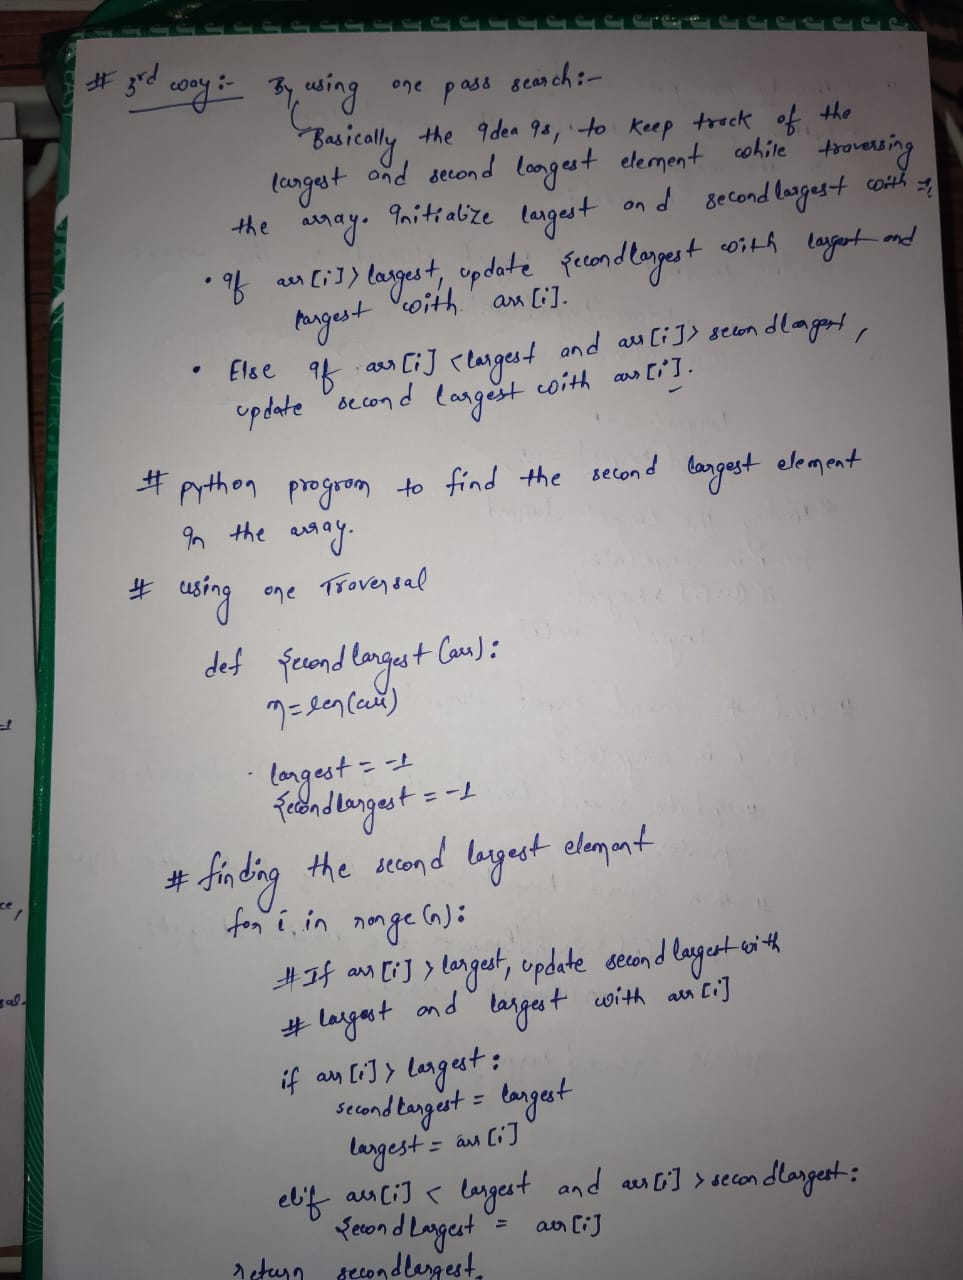 # 3rd way:- By using one pass search:-
Basically the idea is, to keep track of the
largest and second largest element while traversing
the array. Initialize largest and second largest with -1.
• If arr[i] > largest, update second largest with largest and
largest with arr[i].
• Else if arr[i] < largest and arr[i] > second largest,
update second largest with arr[i].
# python program to find the second largest element
in the array.
# using one Traversal
def secondlargest(arr):
n=len(arr)
largest = -1
secondlargest = -1
# finding the second largest element
for i in range(n):
# If arr[i] > largest, update second largest with
# largest and largest with arr[i]
if arr[i] > largest:
secondlargest = largest
largest = arr[i]
elif arr[i] < largest and arr[i] > secondlargest:
secondlargest = arr[i]
return secondlargest.